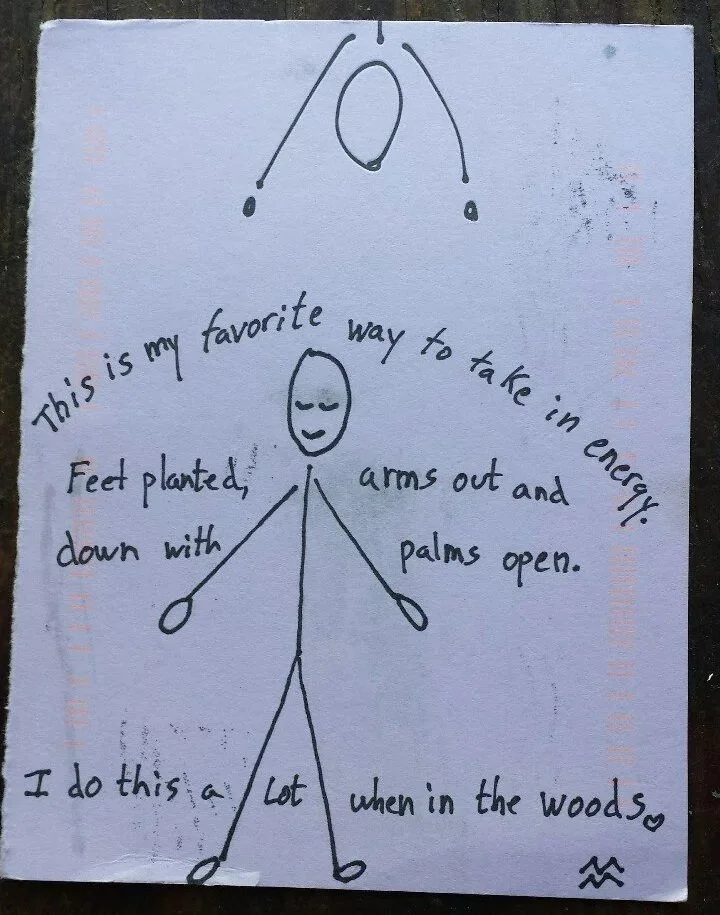 This is my favorite way to take in energy.
Feet planted, arms out and
down with palms open.
I do this a Lot when in the woods